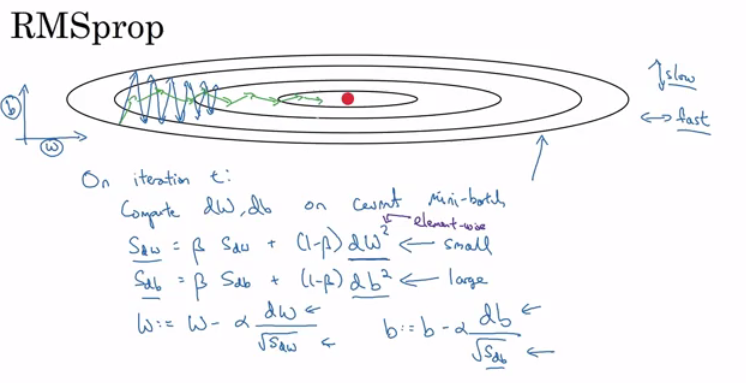 RMSprop
↕ slow
b
↔ fast
w
On iteration t:
Compute dW, db on current mini-batch
element-wise
S_dw = β S_dw + (1-β) dW² ← small
S_db = β S_db + (1-β) db² ← large
W := W - α dW/√S_dw ← b := b - α db/√S_db ←